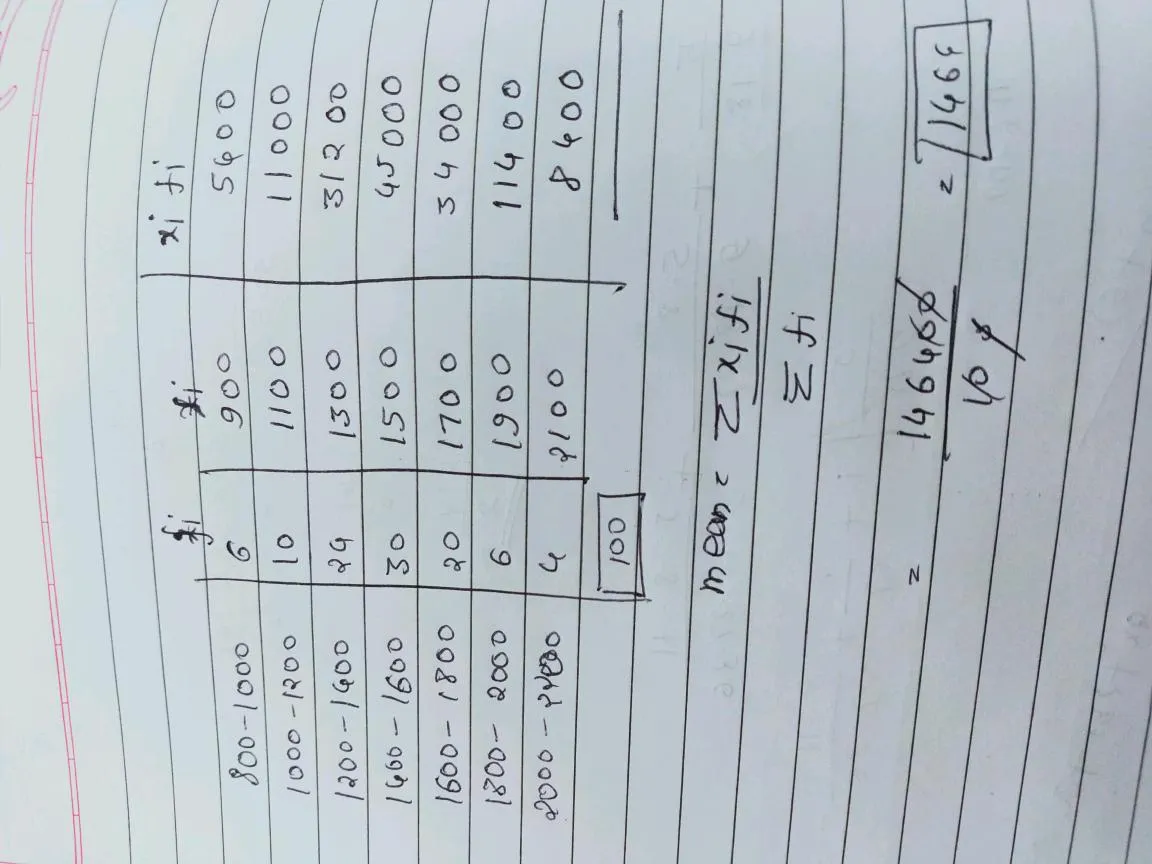 fi xi xi fi
800-1000 6 900 5400
1000-1200 10 1100 11000
1200-1400 24 1300 31200
1400-1600 30 1500 45000
1600-1800 20 1700 34000
1800-2000 6 1900 11400
2000- 4 2100 8400
100
mean = Σ xi fi
Σ fi
= 146400 = 1464
100